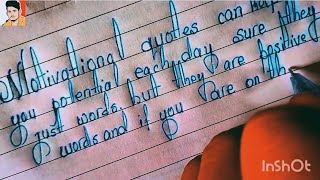 Motivational quotes can help
you potential each day sure they
just words but they are positive
words and if you are on th
InShOt